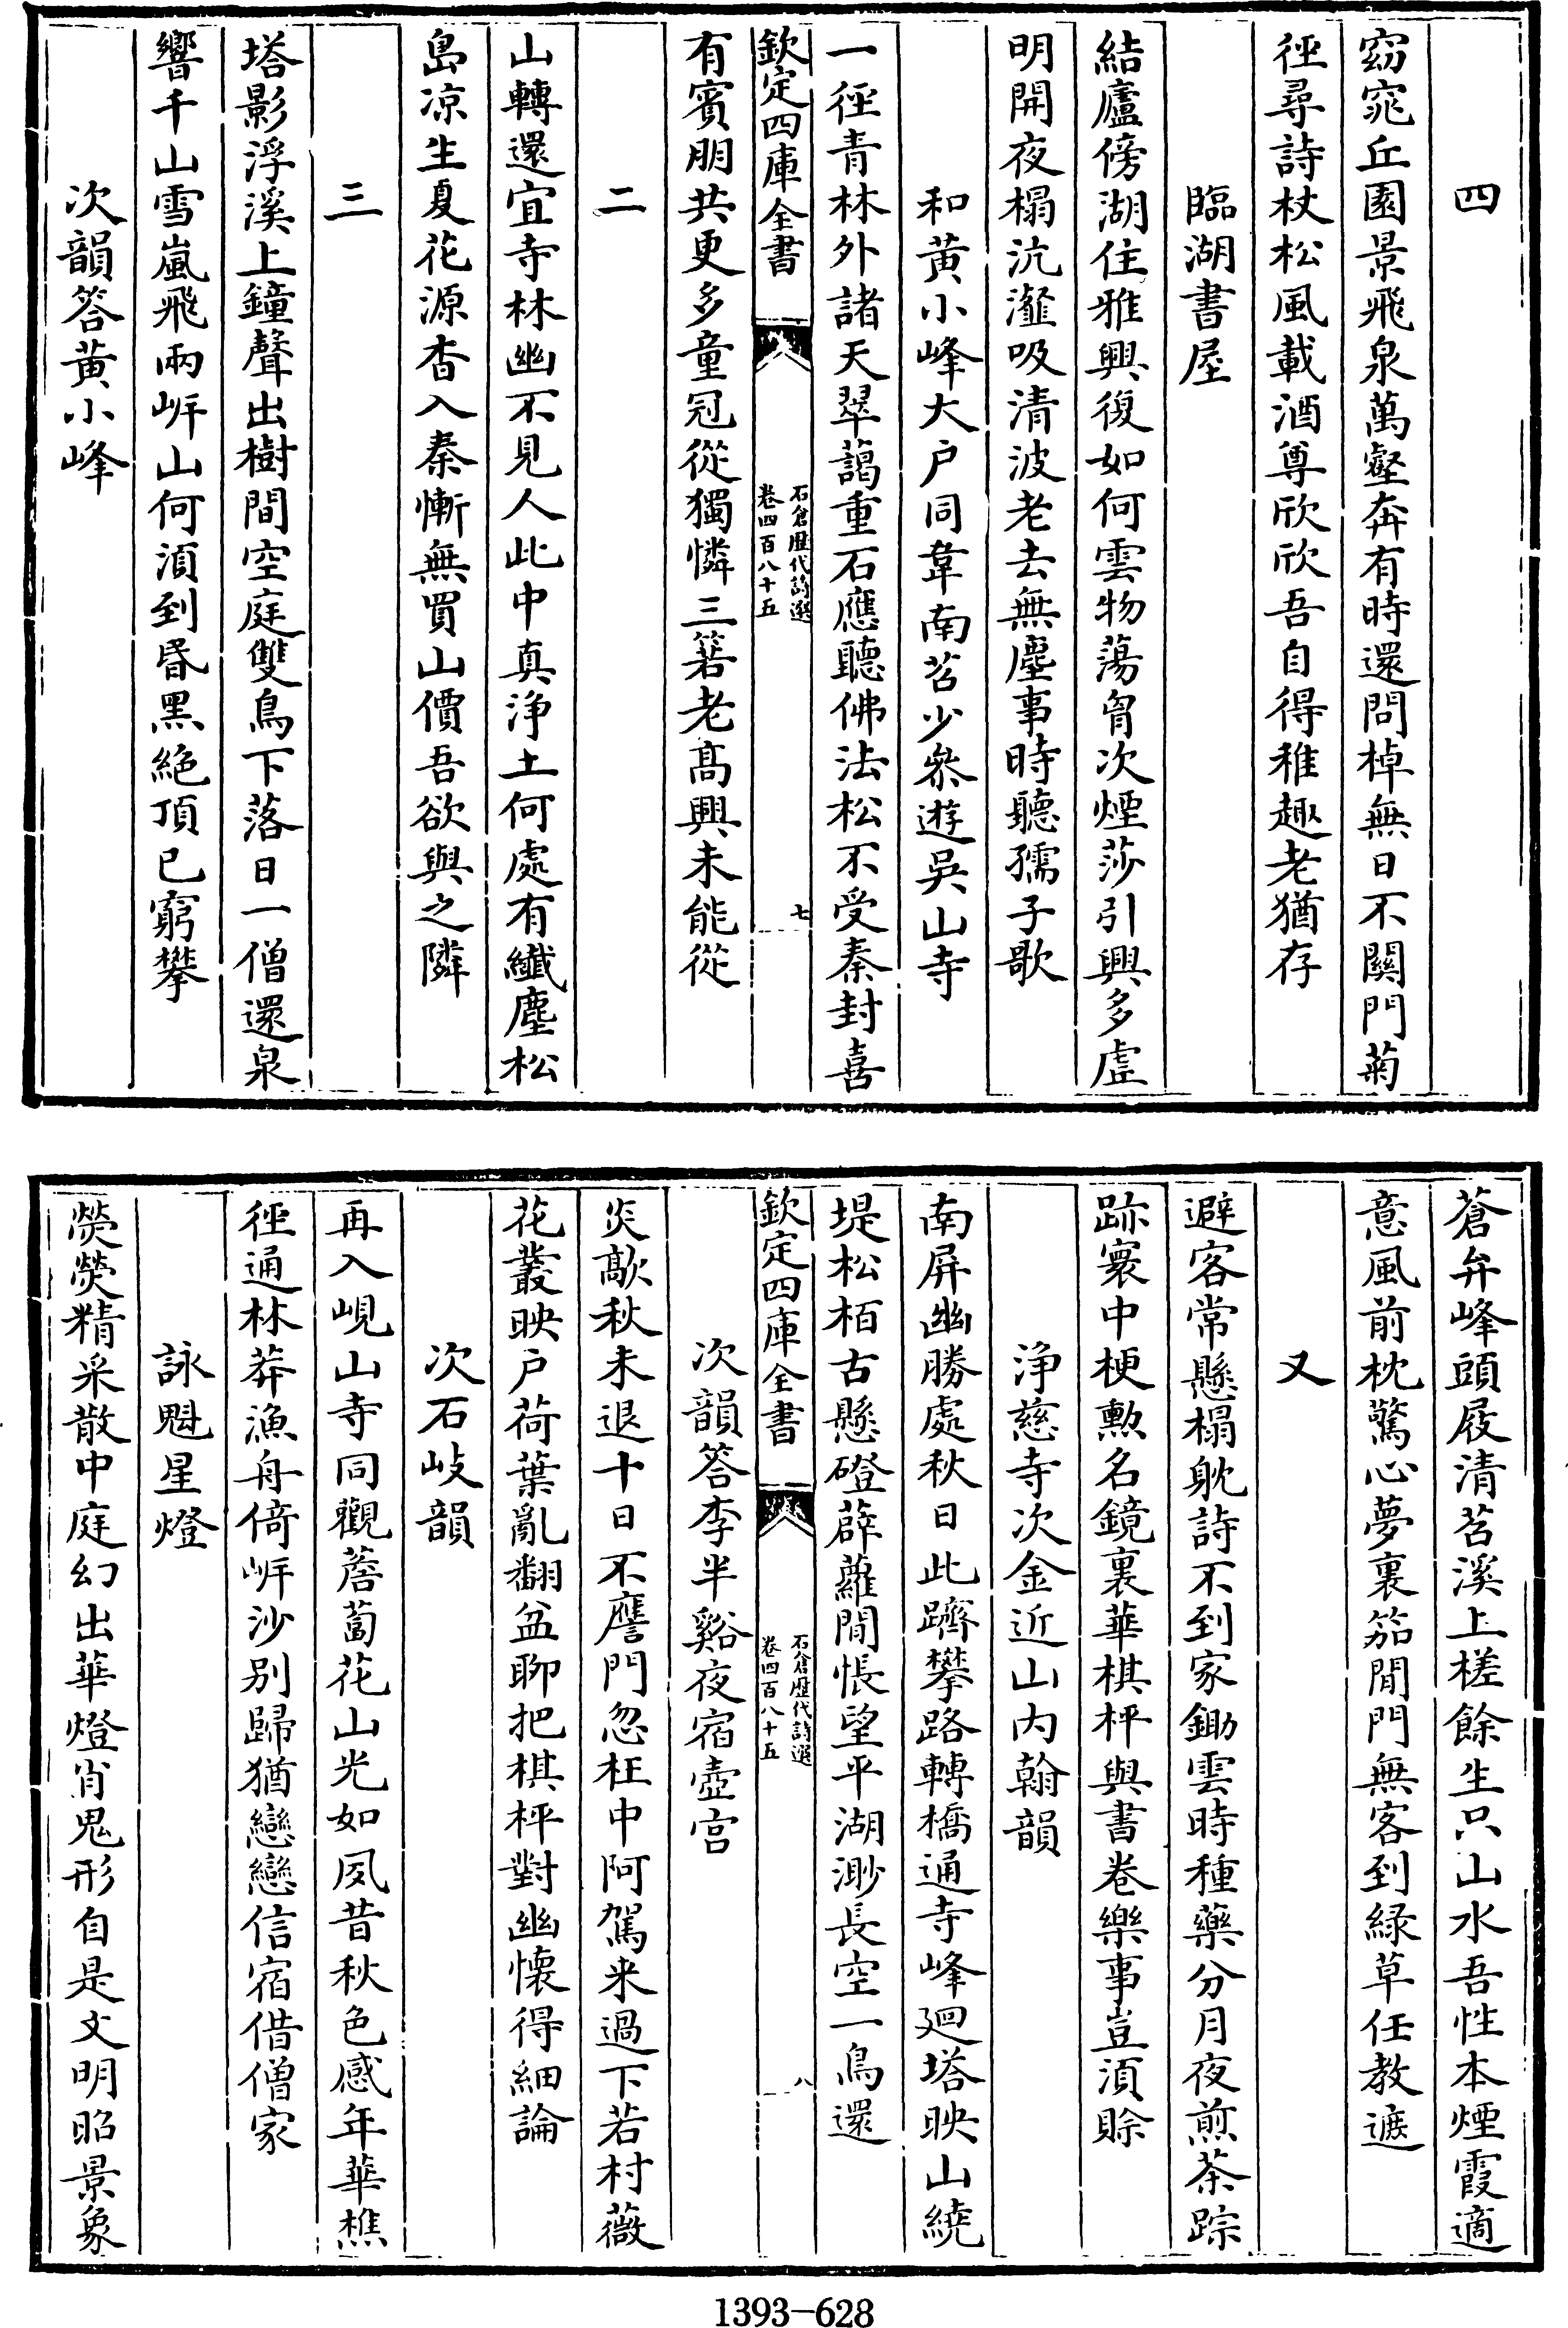 四
窈窕丘園景飛泉萬壑奔有時還問棹無日不闗門菊
徑尋詩杖松風載酒尊欣欣吾自得稚趣老猶存
臨湖書屋
結廬傍湖住雅興復如何雲物蕩胷次煙莎引興多虛
明開夜榻沆瀣吸清波老去無塵事時聽孺子歌
和黄小峰大户同韋南苕少叅遊吳山寺
一徑青林外諸天翠藹重石應聽佛法松不受秦封喜
欽定四庫全書
石倉歴代詩選
卷四百八十五
七
有賓朋共更多童冠從獨憐三箬老髙興未能從
二
山轉還宜寺林幽不見人此中真淨土何處有纖塵松
島凉生夏花源杳入秦慚無買山價吾欲與之隣
三
塔影浮溪上鐘聲出樹間空庭雙鳥下落日一僧還泉
響千山雪嵐飛兩岍山何湏到昏黑絶頂已窮攀
次韻答黄小峰
蒼弁峰頭屐清苕溪上槎餘生只山水吾性本煙霞適
意風前枕驚心夢裏笳閒門無客到緑草任教遮
又
避客常懸榻躭詩不到家鋤雲時種藥分月夜煎茶踪
跡寰中梗勲名鏡裏華棋枰與書卷樂事豈湏賒
淨慈寺次金近山内翰韻
南屏幽勝處秋日此躋攀路轉橋通寺峰廻塔映山繞
堤松栢古懸磴薜蘿閒悵望平湖渺長空一鳥還
欽定四庫全書
石倉歴代詩選
卷四百八十五
八
次韻答李半谿夜宿壺宫
炎歊秋未退十日不譍門忽枉中阿駕来過下若村薇
花叢映户荷葉亂翻盆聊把棋枰對幽懷得細論
次石岐韻
再入峴山寺同觀薝蔔花山光如夙昔秋色感年華樵
徑通林莽漁舟倚岍沙别歸猶戀戀信宿借僧家
詠魁星燈
熒熒精采散中庭幻出華燈肖鬼形自是文明昭景象
1393-628